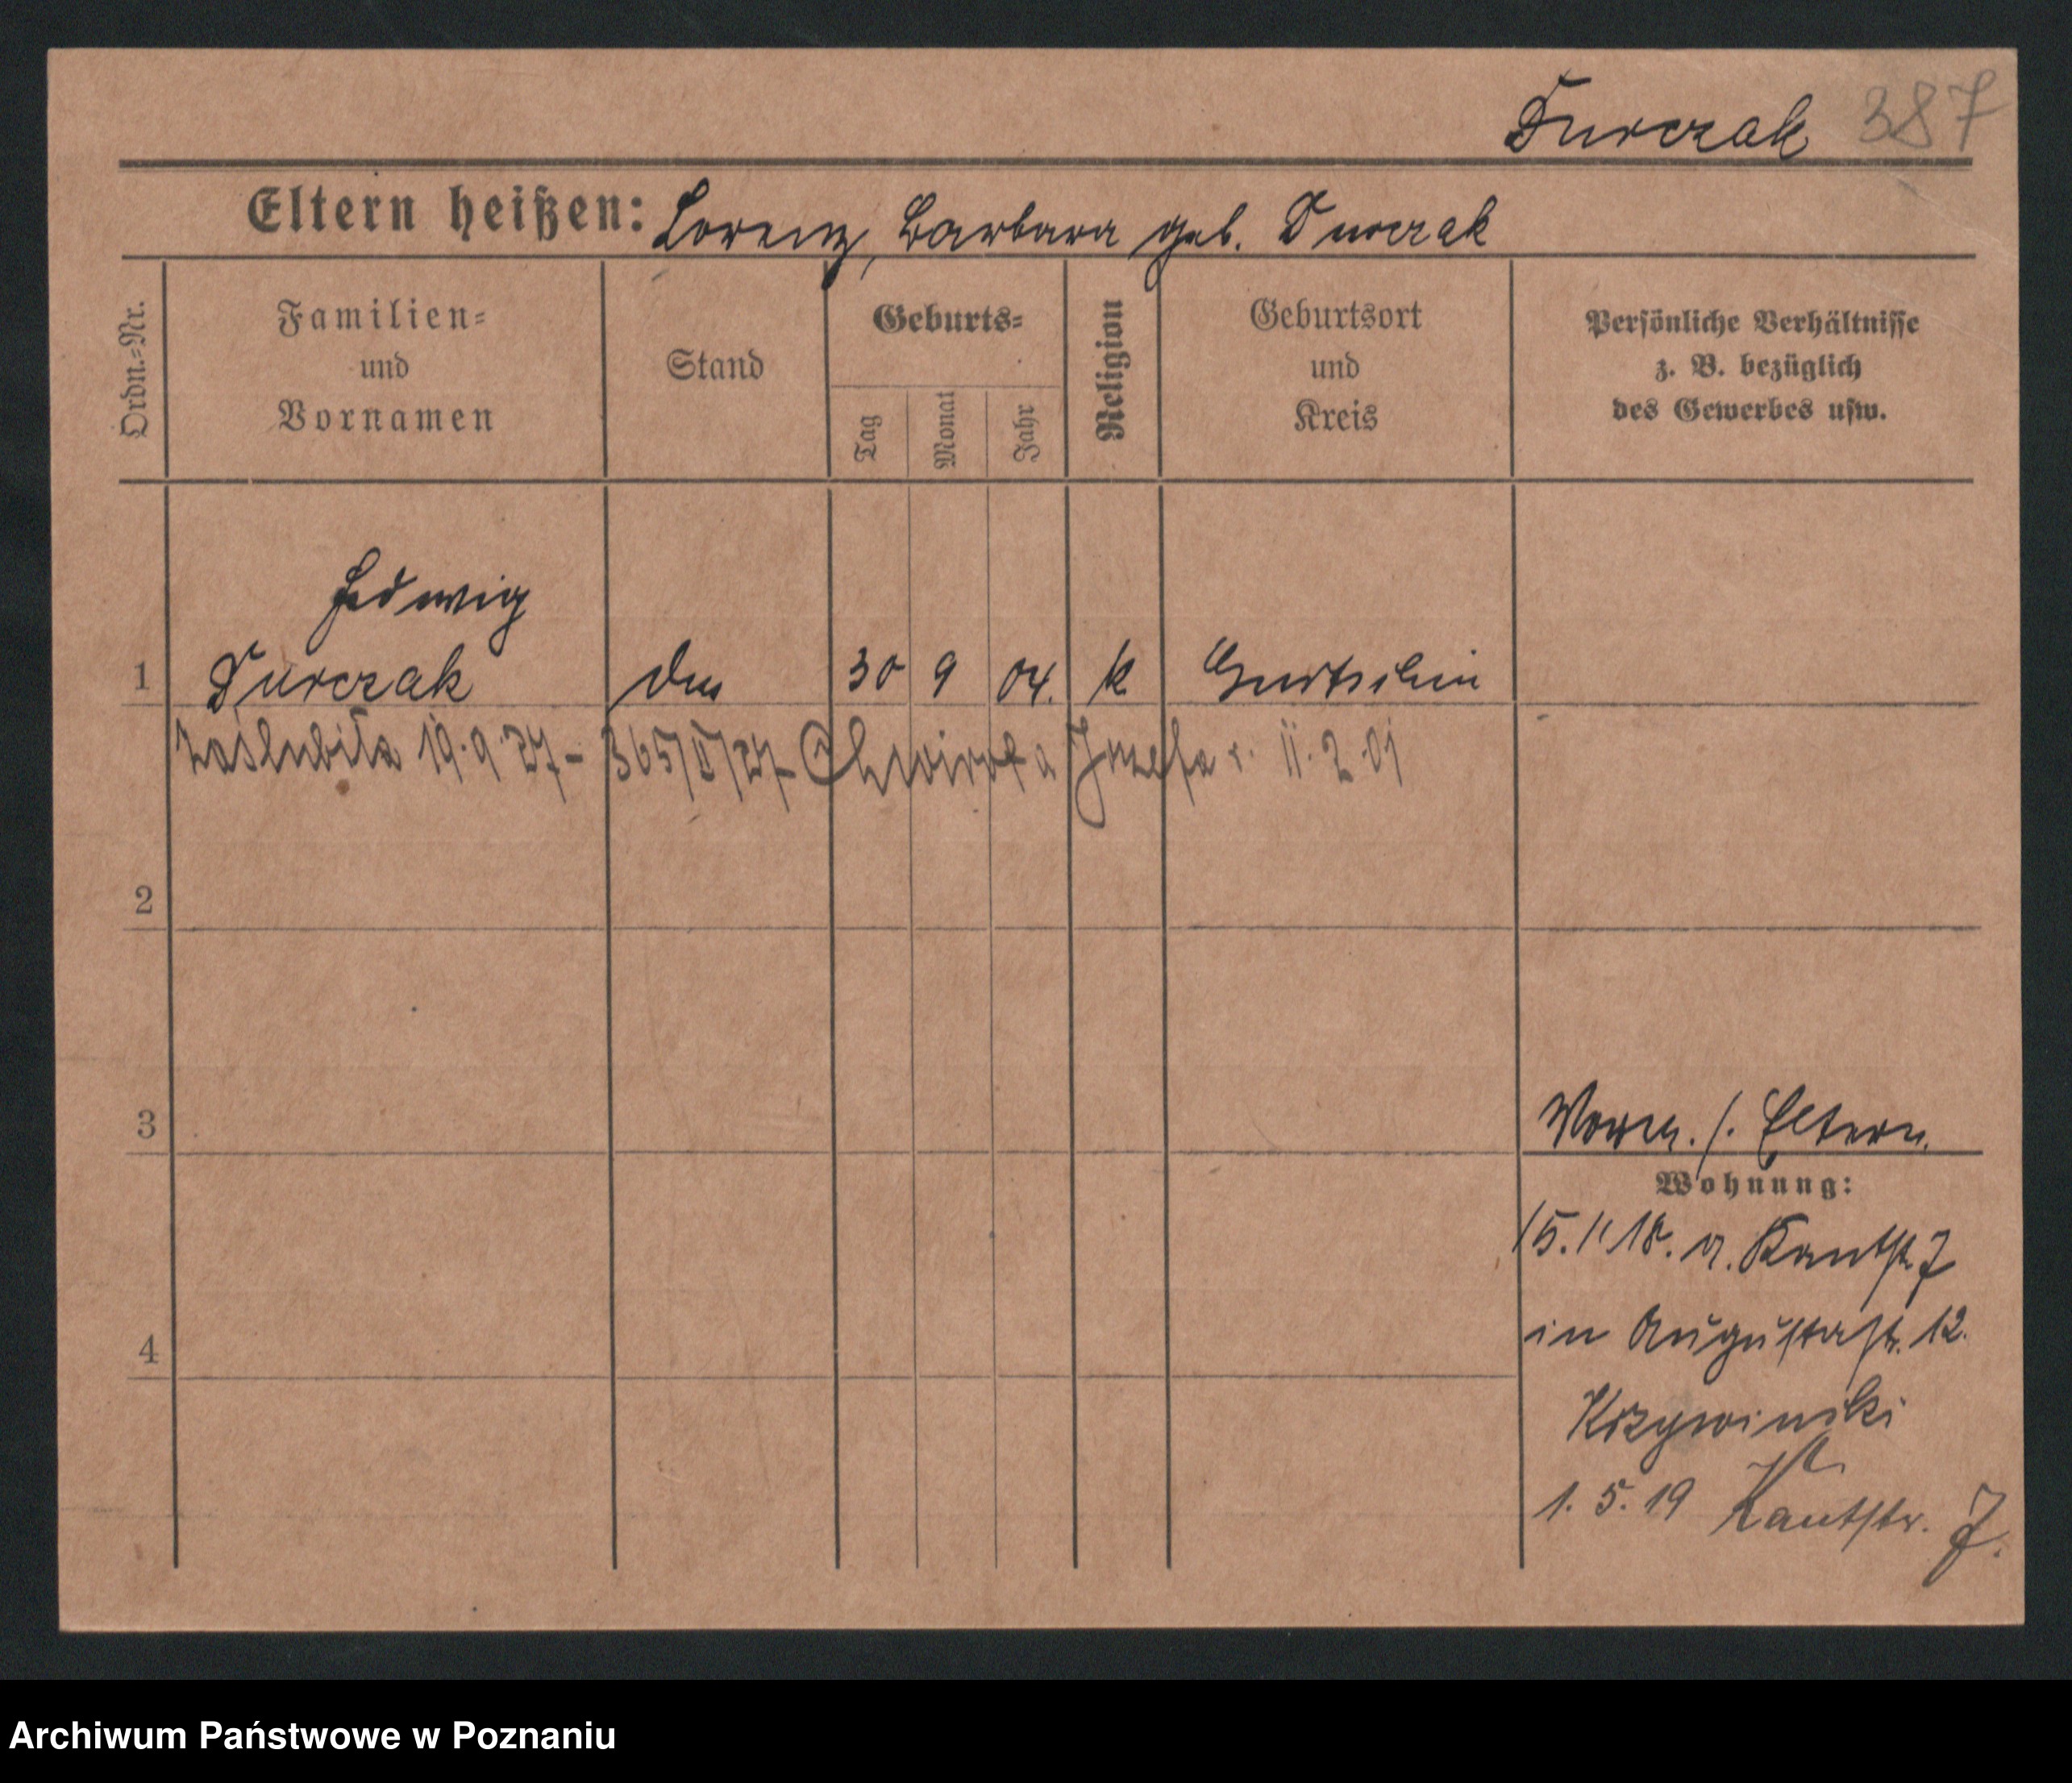 Turczak 387
Eltern heißen: Lorenz, Barbara geb. Turczak
Ordn.=Nr.
Familien=
und
Vornamen
Stand
Geburts=
Tag
Monat
Jahr
Religion
Geburtsort
und
Kreis
Persönliche Verhältnisse
z. B. bezüglich
des Gewerbes usw.
Hedwig
1 Turczak 30 9 04. k Gurtschin
zaślubiła 19.9.27 - 365/II/27 Józefa r. 11.2.01
2
3
Eltern.
Wohnung:
4
15.1 18. a. Kantstr. 7
in Augustastr. 12.
Krzywinski
1. 5. 19 Kantstr. 7.
Archiwum Państwowe w Poznaniu